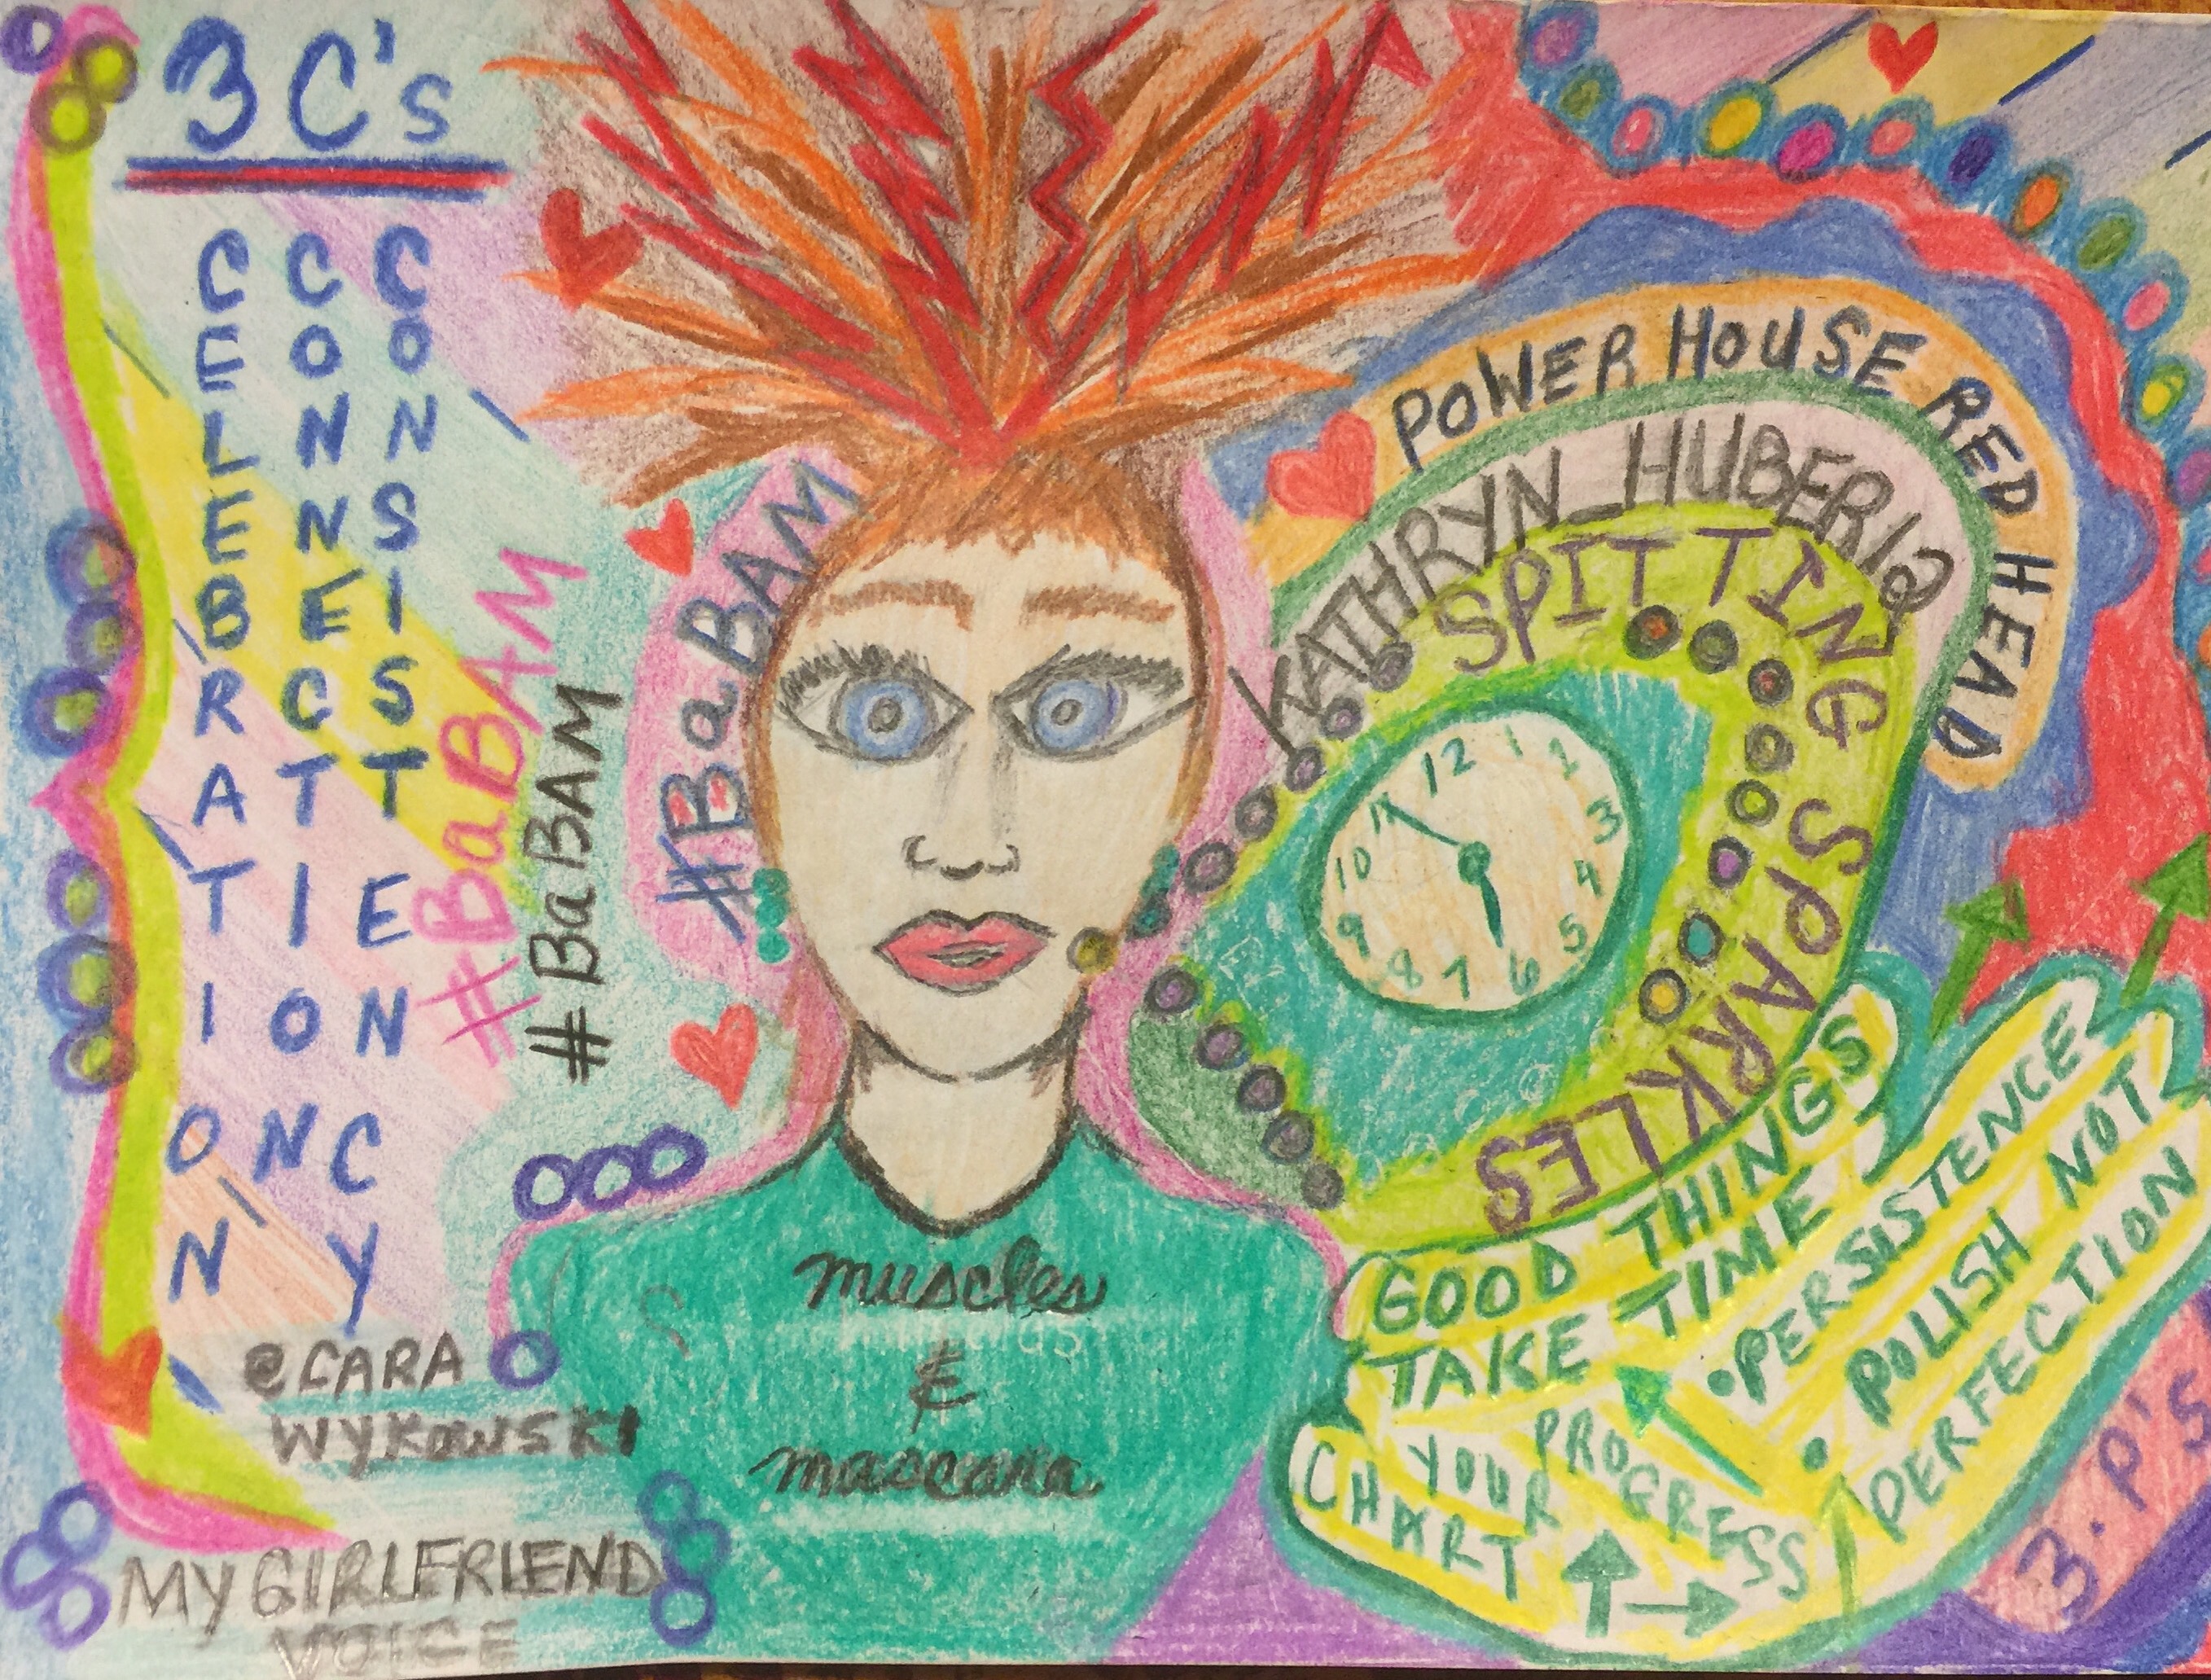 3 C's
CELEBRATION
CONNECTION
CONSISTENCY
#BaBAM
#BaBAM
#BaBAM
@CARA
WYKOWSKI
MY GIRLFRIEND
VOICE
muscles
&
mascara
POWER HOUSE RED HEAD
KATHRYN_HUBER12
SPITTING SPARKLES
12 1 2 3 4 5 6 7 8 9 10 11
GOOD THINGS
TAKE TIME
• PERSISTENCE
• POLISH NOT
PERFECTION
CHART YOUR PROGRESS
3 • P'S